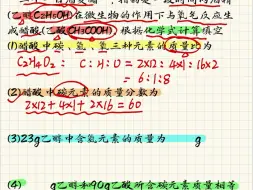 (乙醇C2H5OH)在微生物的作用下与氧气反应生
成醋酸(乙酸CH3COOH) 根据化学式计算填空
(1)醋酸中碳、氢、氧三种元素的质量比为
C2H4O2: C:H:O=2×12:4×1:16×2
=6:1:8
(2)醋酸中碳元素的质量分数为
2×12+4×1+2×16=60
(3)23g乙醇中含氢元素的质量为 g
(4) g乙醇和90g乙酸所含碳元素质量相等